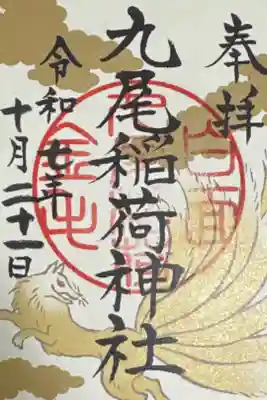 奉拝
九尾稲荷神社
令和七年
十月二十一日